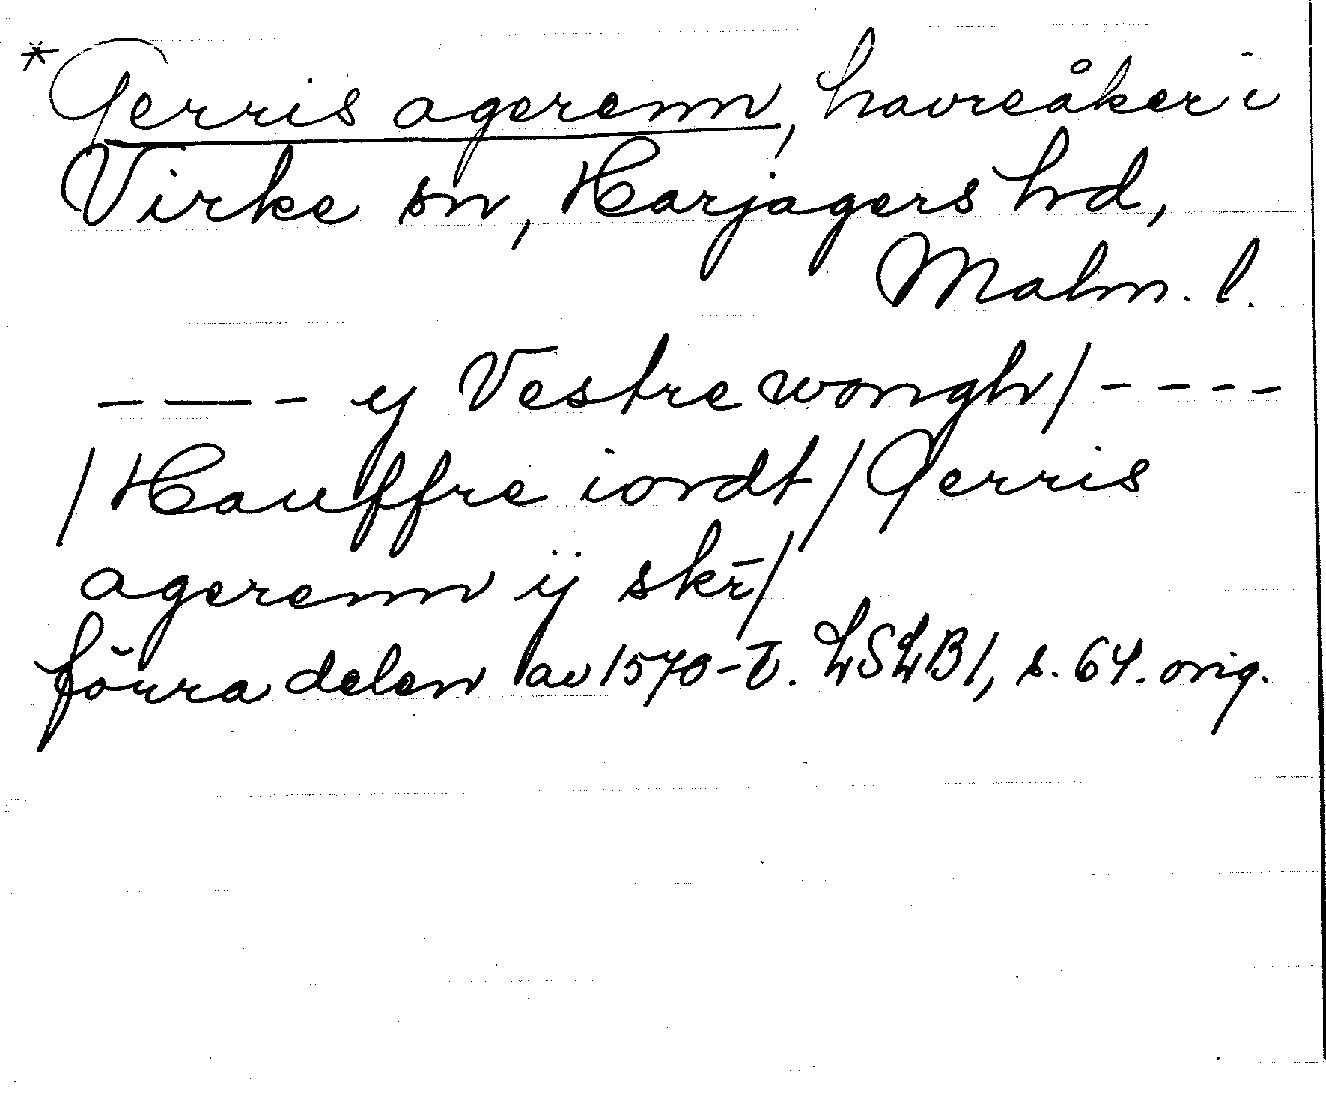 *Gerris agerenn, havreåker i
Virke sn, Harjagers hd,
Malm. l.
– — – y Vestre wongh/ – – – –
/Hauffre iordt/ Gerris
agerenn ij skr̄/
förra delen av 1570-t. LSLB1, s. 64. orig.